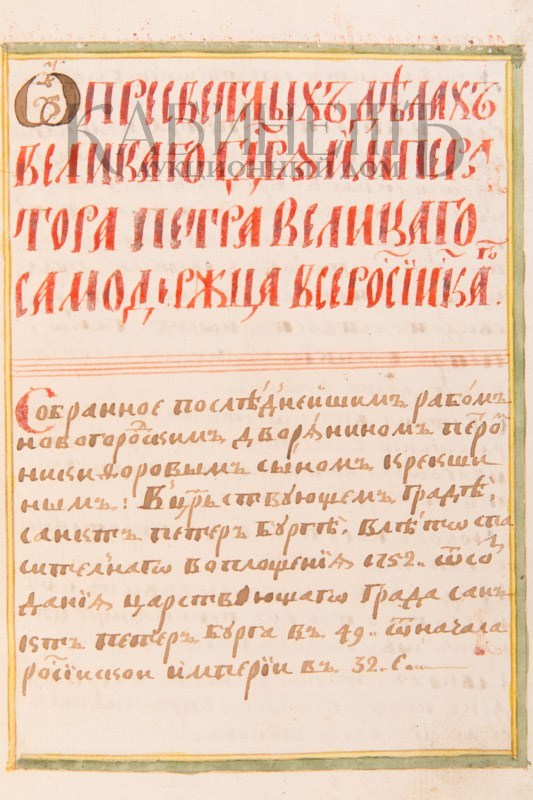 Ѡ ПРЕСВЕТЛЫХЪ ДѢЛАХЪ
ВЕЛИКАГО ГДРѦ ИМПЕРА
ТОРА ПЕТРА ВЕЛИКАГО
САМОДЕРЖЦА ВСЕРОСІИСКАГО.
КАБИНЕТЪ
АУКЦИОННЫЙ ДОМ
Собранное послѣднейшимъ рабомъ
новогороскимъ дворѧниномъ петро
никифоровымъ сыномъ крекши
нымъ: Въ црьствующемъ градѣ,
санктъ петеръ бургѣ. влѣто спа
сителнагѡ воплощениѧ 1752.. ѿсо
даниѧ царствующагѡ града санк
ктъ петеръ бурга въ 49.. ѿначала
росіискои имперіи въ 32.е.